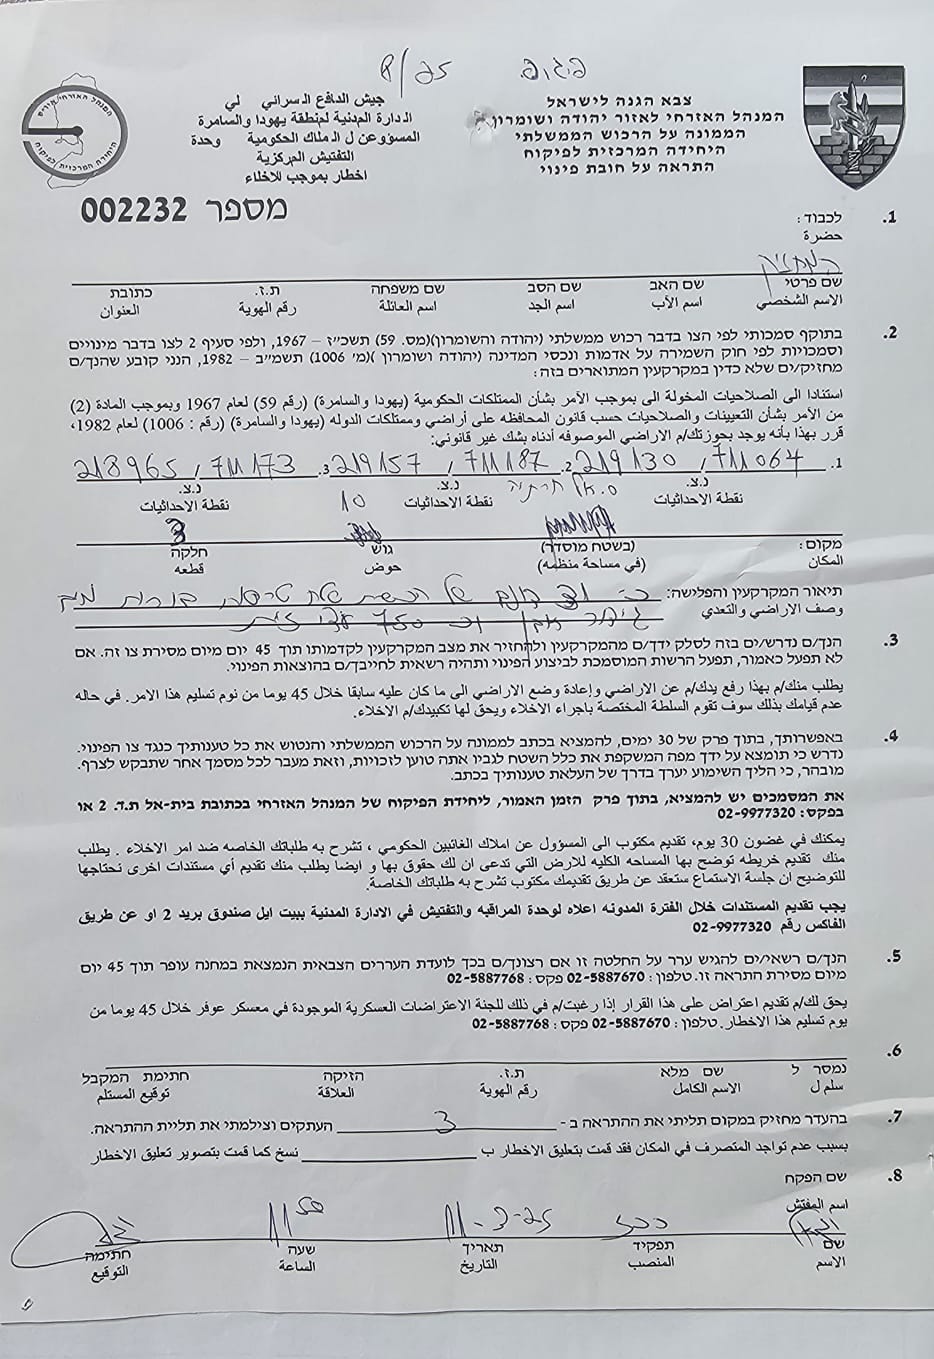 8/25
צבא הגנה לישראל
המנהל האזרחי לאזור יהודה ושומרון
הממונה על הרכוש הממשלתי
היחידה המרכזית לפיקוח
התראה על חובת פינוי
جيش الدافع الـسراني لي
الدارة المدنية لمنطقة يهودا والسامرة
المسؤوعن ل الـملاك الحكومية وحدة
التفتيش المركزية
اخطار بموجب للاخلاء
מספר 002232
1. לכבוד :
حضرة
המחזיק
שם פרטי שם האב שם הסב שם משפחה ת.ז. כתובת
الاسم الشخصي اسم الأب اسم الجد اسم العائلة رقم الهوية العنوان
2. בתוקף סמכותי לפי הצו בדבר רכוש ממשלתי (יהודה והשומרון)(מס. 59) תשכ״ז – 1967, ולפי סעיף 2 לצו בדבר מינויים
וסמכויות לפי חוק השמירה על אדמות ונכסי המדינה (יהודה ושומרון )(מ׳ 1006) תשמ״ב – 1982, הנני קובע שהנך/ם
מחזיק/ים שלא כדין במקרקעין המתוארים בזה:
استنادا الى الصلاحيات المخولة الى بموجب الأمر بشأن الممتلكات الحكومية (يهودا والسامرة) (رقم 59) لعام 1967 وبموجب المادة (2)
من الأمر بشأن التعيينات والصلاحيات حسب قانون المحافظه على أراضي وممتلكات الدوله (يهودا والسامرة) (رقم : 1006) لعام 1982،
قرر بهذا بأنه يوجد بحوزتك/م الاراضي الموصوفه أدناه بشك غير قانوني:
1. 219130 / 711064 2. 219157 / 711187 3. 218965 / 711173
נ.צ. נ.צ. נ.צ.
نقطة الاحداثيات نقطة الاحداثيات نقطة الاحداثيات
10
3
מקום : (בשטח מוסדר) גוש חלקה
المكان (في مساحة منظمه) حوض قطعه
תיאור המקרקעין והפלישה:
وصف الاراضي والتعدي
3. הנך/ם נדרש/ים בזה לסלק ידך/ם מהמקרקעין ולהחזיר את מצב המקרקעין לקדמותו תוך 45 יום מיום מסירת צו זה. אם
לא תפעל כאמור, תפעל הרשות המוסמכת לביצוע הפינוי ותהיה רשאית לחייבך/ם בהוצאות הפינוי.
يطلب منك/م بهذا رفع يدك/م عن الاراضي وإعادة وضع الاراضي الى ما كان عليه سابقا خلال 45 يوما من نوم تسليم هذا الامر. في حاله
عدم قيامك بذلك سوف تقوم السلطة المختصة باجراء الاخلاء ويحق لها تكبيدك/م الاخلاء.
4. באפשרותך, בתוך פרק של 30 ימים, להמציא בכתב לממונה על הרכוש הממשלתי והנטוש את כל טענותיך כנגד צו הפינוי.
נדרש כי תומצא על ידך מפה המשקפת את כלל השטח לגביו אתה טוען לזכויות, וזאת מעבר לכל מסמך אחר שתבקש לצרף.
מובהר, כי הליך השימוע יערך בדרך של העלאת טענותיך בכתב.
את המסמכים יש להמציא, בתוך פרק הזמן האמור, ליחידת הפיקוח של המנהל האזרחי בכתובת בית-אל ת.ד. 2 או
בפקס: 02-9977320
يمكنك في غضون 30 يوم، تقديم مكتوب الى المسؤول عن املاك الغائبين الحكومي ، تشرح به طلباتك الخاصه ضد امر الاخلاء . يطلب
منك تقديم خريطه توضح بها المساحه الكليه للارض التي تدعى ان لك حقوق بها و ايضا يطلب منك تقديم أي مستندات اخرى نحتاجها
للتوضيح ان جلسة الاستماع ستعقد عن طريق تقديمك مكتوب تشرح به طلباتك الخاصة.
يجب تقديم المستندات خلال الفترة المدونه اعلاه لوحدة المراقبه والتفتيش في الادارة المدنية ببيت ايل صندوق بريد 2 او عن طريق
الفاكس رقم 02-9977320
5. הנך/ם רשאי/ים להגיש ערר על החלטה זו אם רצונך/ם בכך לועדת העררים הצבאית הנמצאת במחנה עופר תוך 45 יום
מיום מסירת התראה זו. טלפון : 02-5887670 פקס : 02-5887768
يحق لك/م تقديم اعتراض على هذا القرار إذا رغبت/م في ذلك للجنة الاعتراضات العسكرية الموجودة في معسكر عوفر خلال 45 يوما من
يوم تسليم هذا الاخطار. טלפון : 02-5887670 פקס : 02-5887768
6.
נמסר ל שם מלא ת.ז. הזיקה חתימת המקבל
سلم ل الاسم الكامل رقم الهوية العلاقة توقيع المستلم
7. בהעדר מחזיק במקום תליתי את ההתראה ב - 3 העתקים וצילמתי את תליית ההתראה.
بسبب عدم تواجد المتصرف في المكان فقد قمت بتعليق الاخطار ب نسخ كما قمت بتصوير تعليق الاخطار
8. שם הפקח
اسم المفتش
11-3-25 11 50
שם תפקיד תאריך שעה חתימה
الاسم المنصب التاريخ الساعة التوقيع